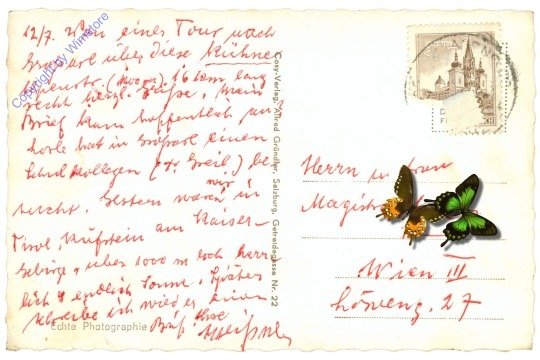 12/7. Von einer Tour nach
Großarl über diese kühne
(1800 m) 16 km lang
recht herzl. Grüße, mein
Brief kam hoffentlich an.
hat in Großarl einen
Schulkollegen (Dr. Greil) be-
sucht. Gestern waren wir in
Tirol, Kufstein am Kaiser-
Gebirge, über 1000 m hoch herr-
lich & endlich Sonne. Später
schreibe ich wieder einen
Brief. Ihre
Echte Photographie
Cosy-Verlag, Alfred Gründler, Salzburg, Getreidegasse Nr. 22
Herrn u. Frau
Magister
Wien III
27
Copyright by Winstore